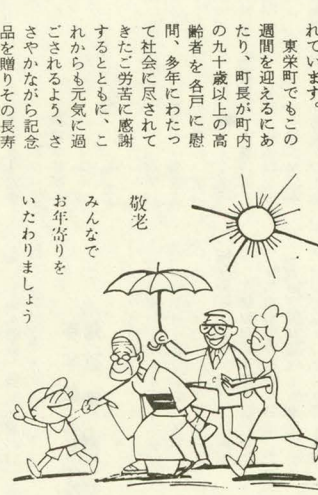 れています。
東栄町でもこの
週間を迎えるにあ
たり、町長が町内
の九十歳以上の高
齢者を各戸に慰
問、多年にわたっ
て社会に尽されて
きたご労苦に感謝
するとともに、こ
れからも元気に過
ごされるよう、さ
さやかながら記念
品を贈りその長寿
敬老
みんなで
お年寄りを
いたわりましょう